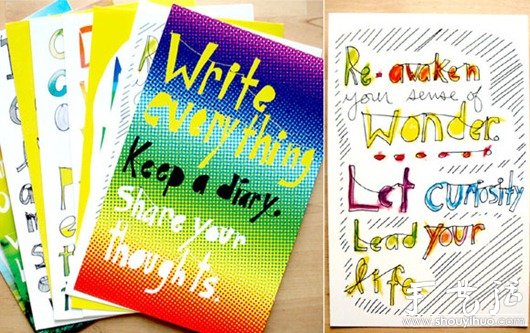 Write
everything
Keep a diary.
Share your
thoughts.
Re-awaken
your sense of
Wonder.
Let curiosity
Lead your
life.
www.shouyihuo.com